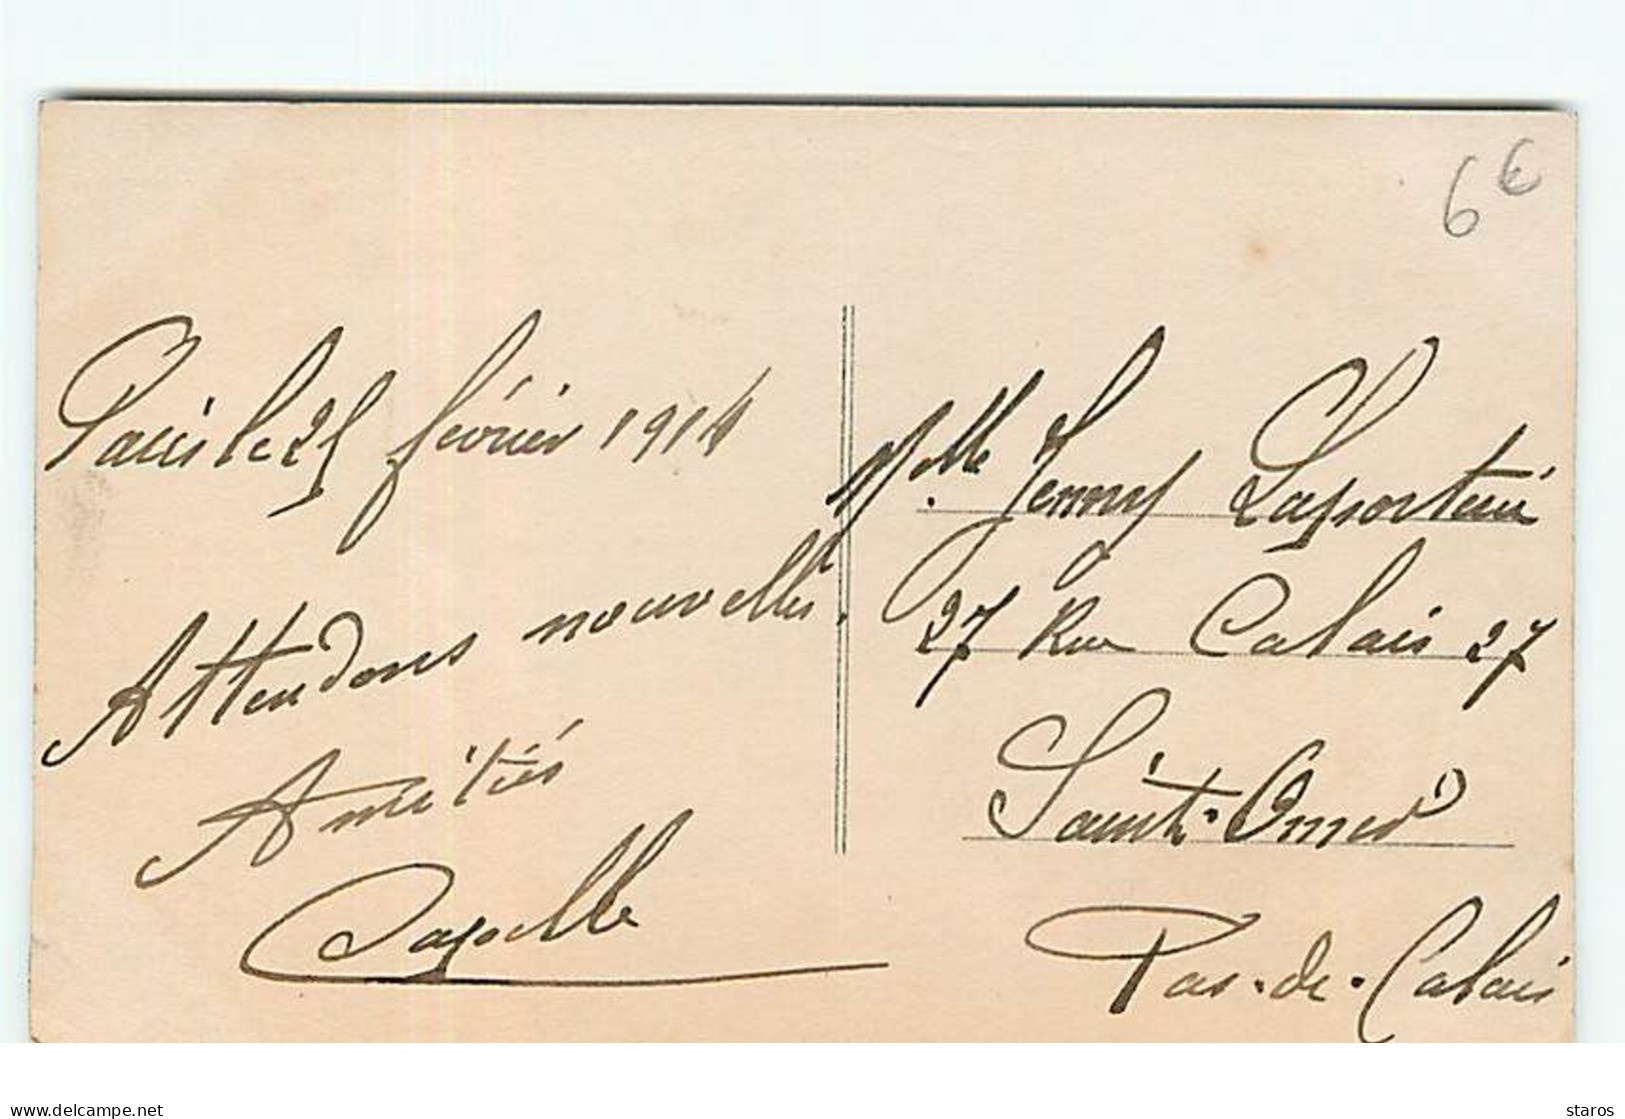 6€
Paris le 25 février 1914
Attendons nouvelles.
Amitiés
Capelle
Melle Jenny
27 Rue Calais 27
Saint-Omer
Pas-de-Calais
www.delcampe.net
staros